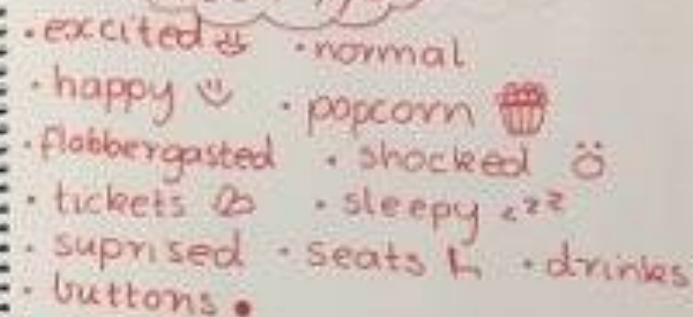 • excited • normal
• happy • popcorn
• flabbergasted • shocked
• tickets • sleepy zzz
• suprised • seats • drinks
• buttons